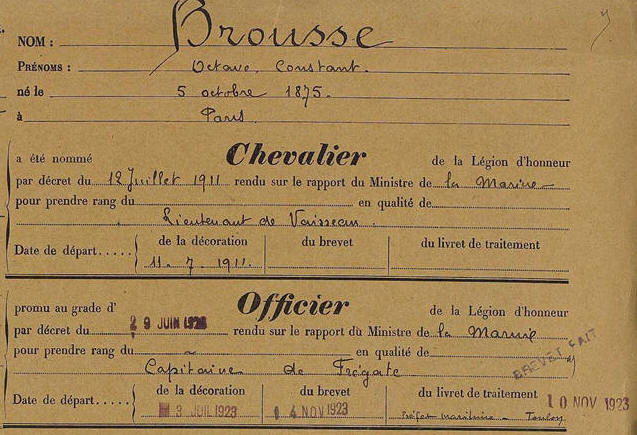 NOM : Brousse
PRÉNOMS : Octave. Constant.
né le 5 octobre 1875.
à Paris.
a été nommé Chevalier de la Légion d'honneur
par décret du 12 Juillet 1911 rendu sur le rapport du Ministre de la Marine
pour prendre rang du en qualité de
Lieutenant de Vaisseau.
Date de départ..... de la décoration du brevet du livret de traitement
11. 7. 1911.
promu au grade d' Officier de la Légion d'honneur
par décret du 29 JUIN 1923 rendu sur le rapport du Ministre de la Marine
pour prendre rang du en qualité de
BREVET FAIT
Capitaine de Frégate
Date de départ..... de la décoration du brevet du livret de traitement
3 JUIL 1923 4 NOV 1923 Préfet maritime - Toulon 10 NOV 1923